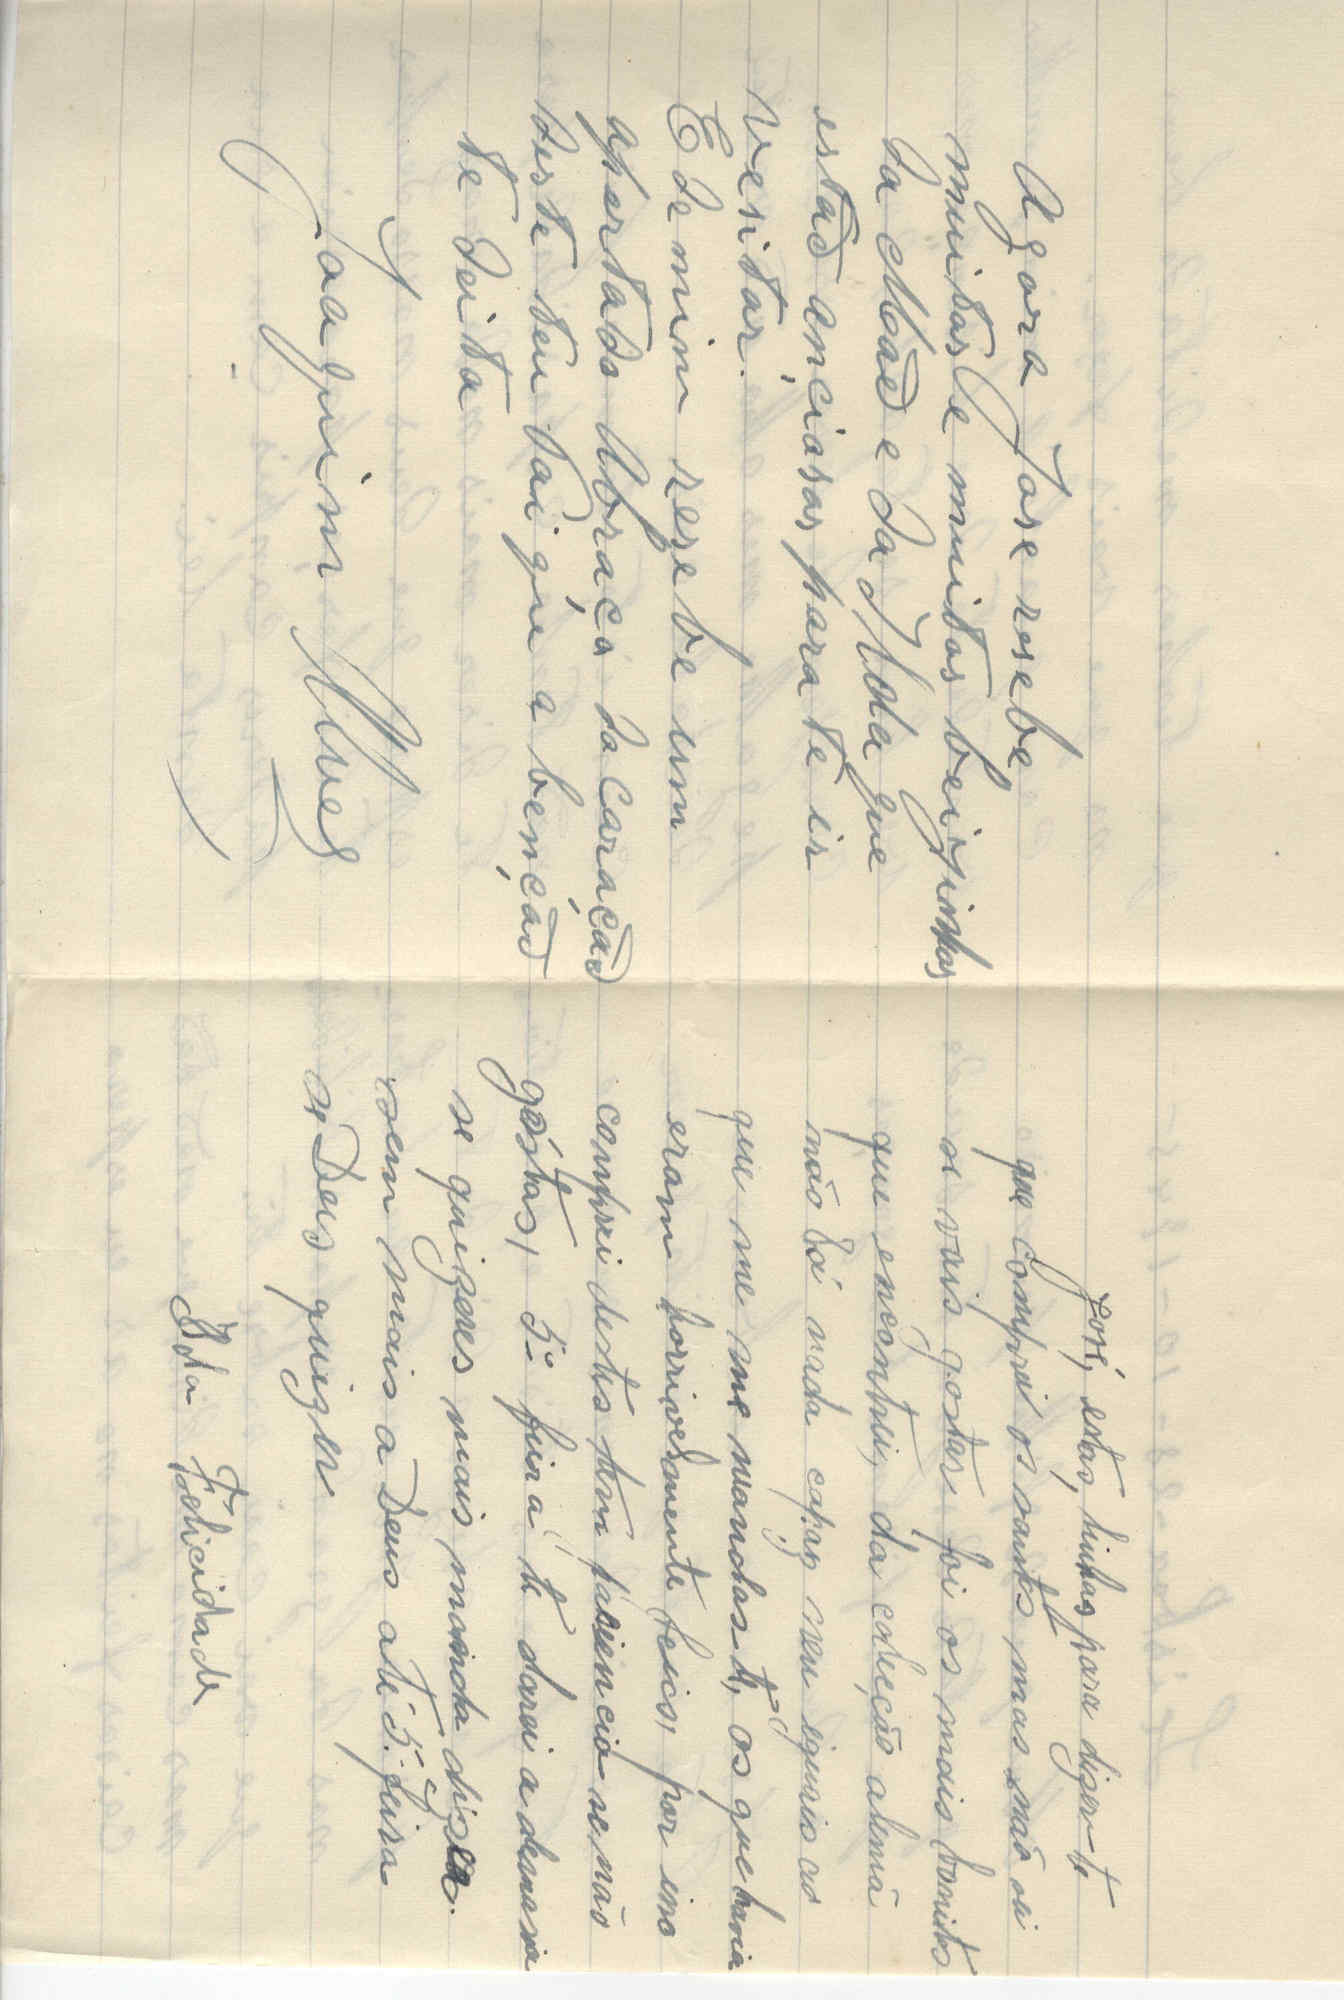 Agora Jose resebe
muitas e muitas beijinhos
da Maẽ e da Ilda que
estaõ ançiosas para te ir
vesitar.
E de mim resebe um
apertado Abraço do Caraçaõ
deste teu Pai que a bençaõ
te deita
Joaquim Alves
José, estas, linhas para diser-te
que comprei os santos mas não sei
se vais gostar foi os mais bonitos
que encontrei, da coleção alemã
não há nada capaz nem iguais ao
que me me mandaste, os que havia
eram horrivelmente feios, por isso
comprei destes tem paciencia se não
góstas, 5ª feira te darei a demasia
se quizeres mais manda diser.
sem mais a Deus até 5ª feira
se Deus quizer
Ilda Felicidade